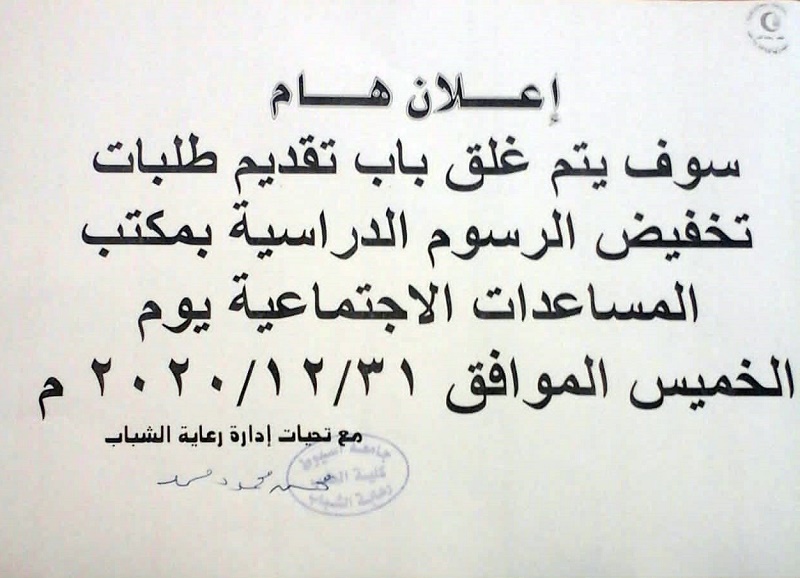 إعلان هام
سوف يتم غلق باب تقديم طلبات
تخفيض الرسوم الدراسية بمكتب
المساعدات الاجتماعية يوم
الخميس الموافق ٢٠٢٠/١٢/٣١ م
مع تحيات إدارة رعاية الشباب
جامعة أسيوط
كلية
رعاية الشباب
محمود